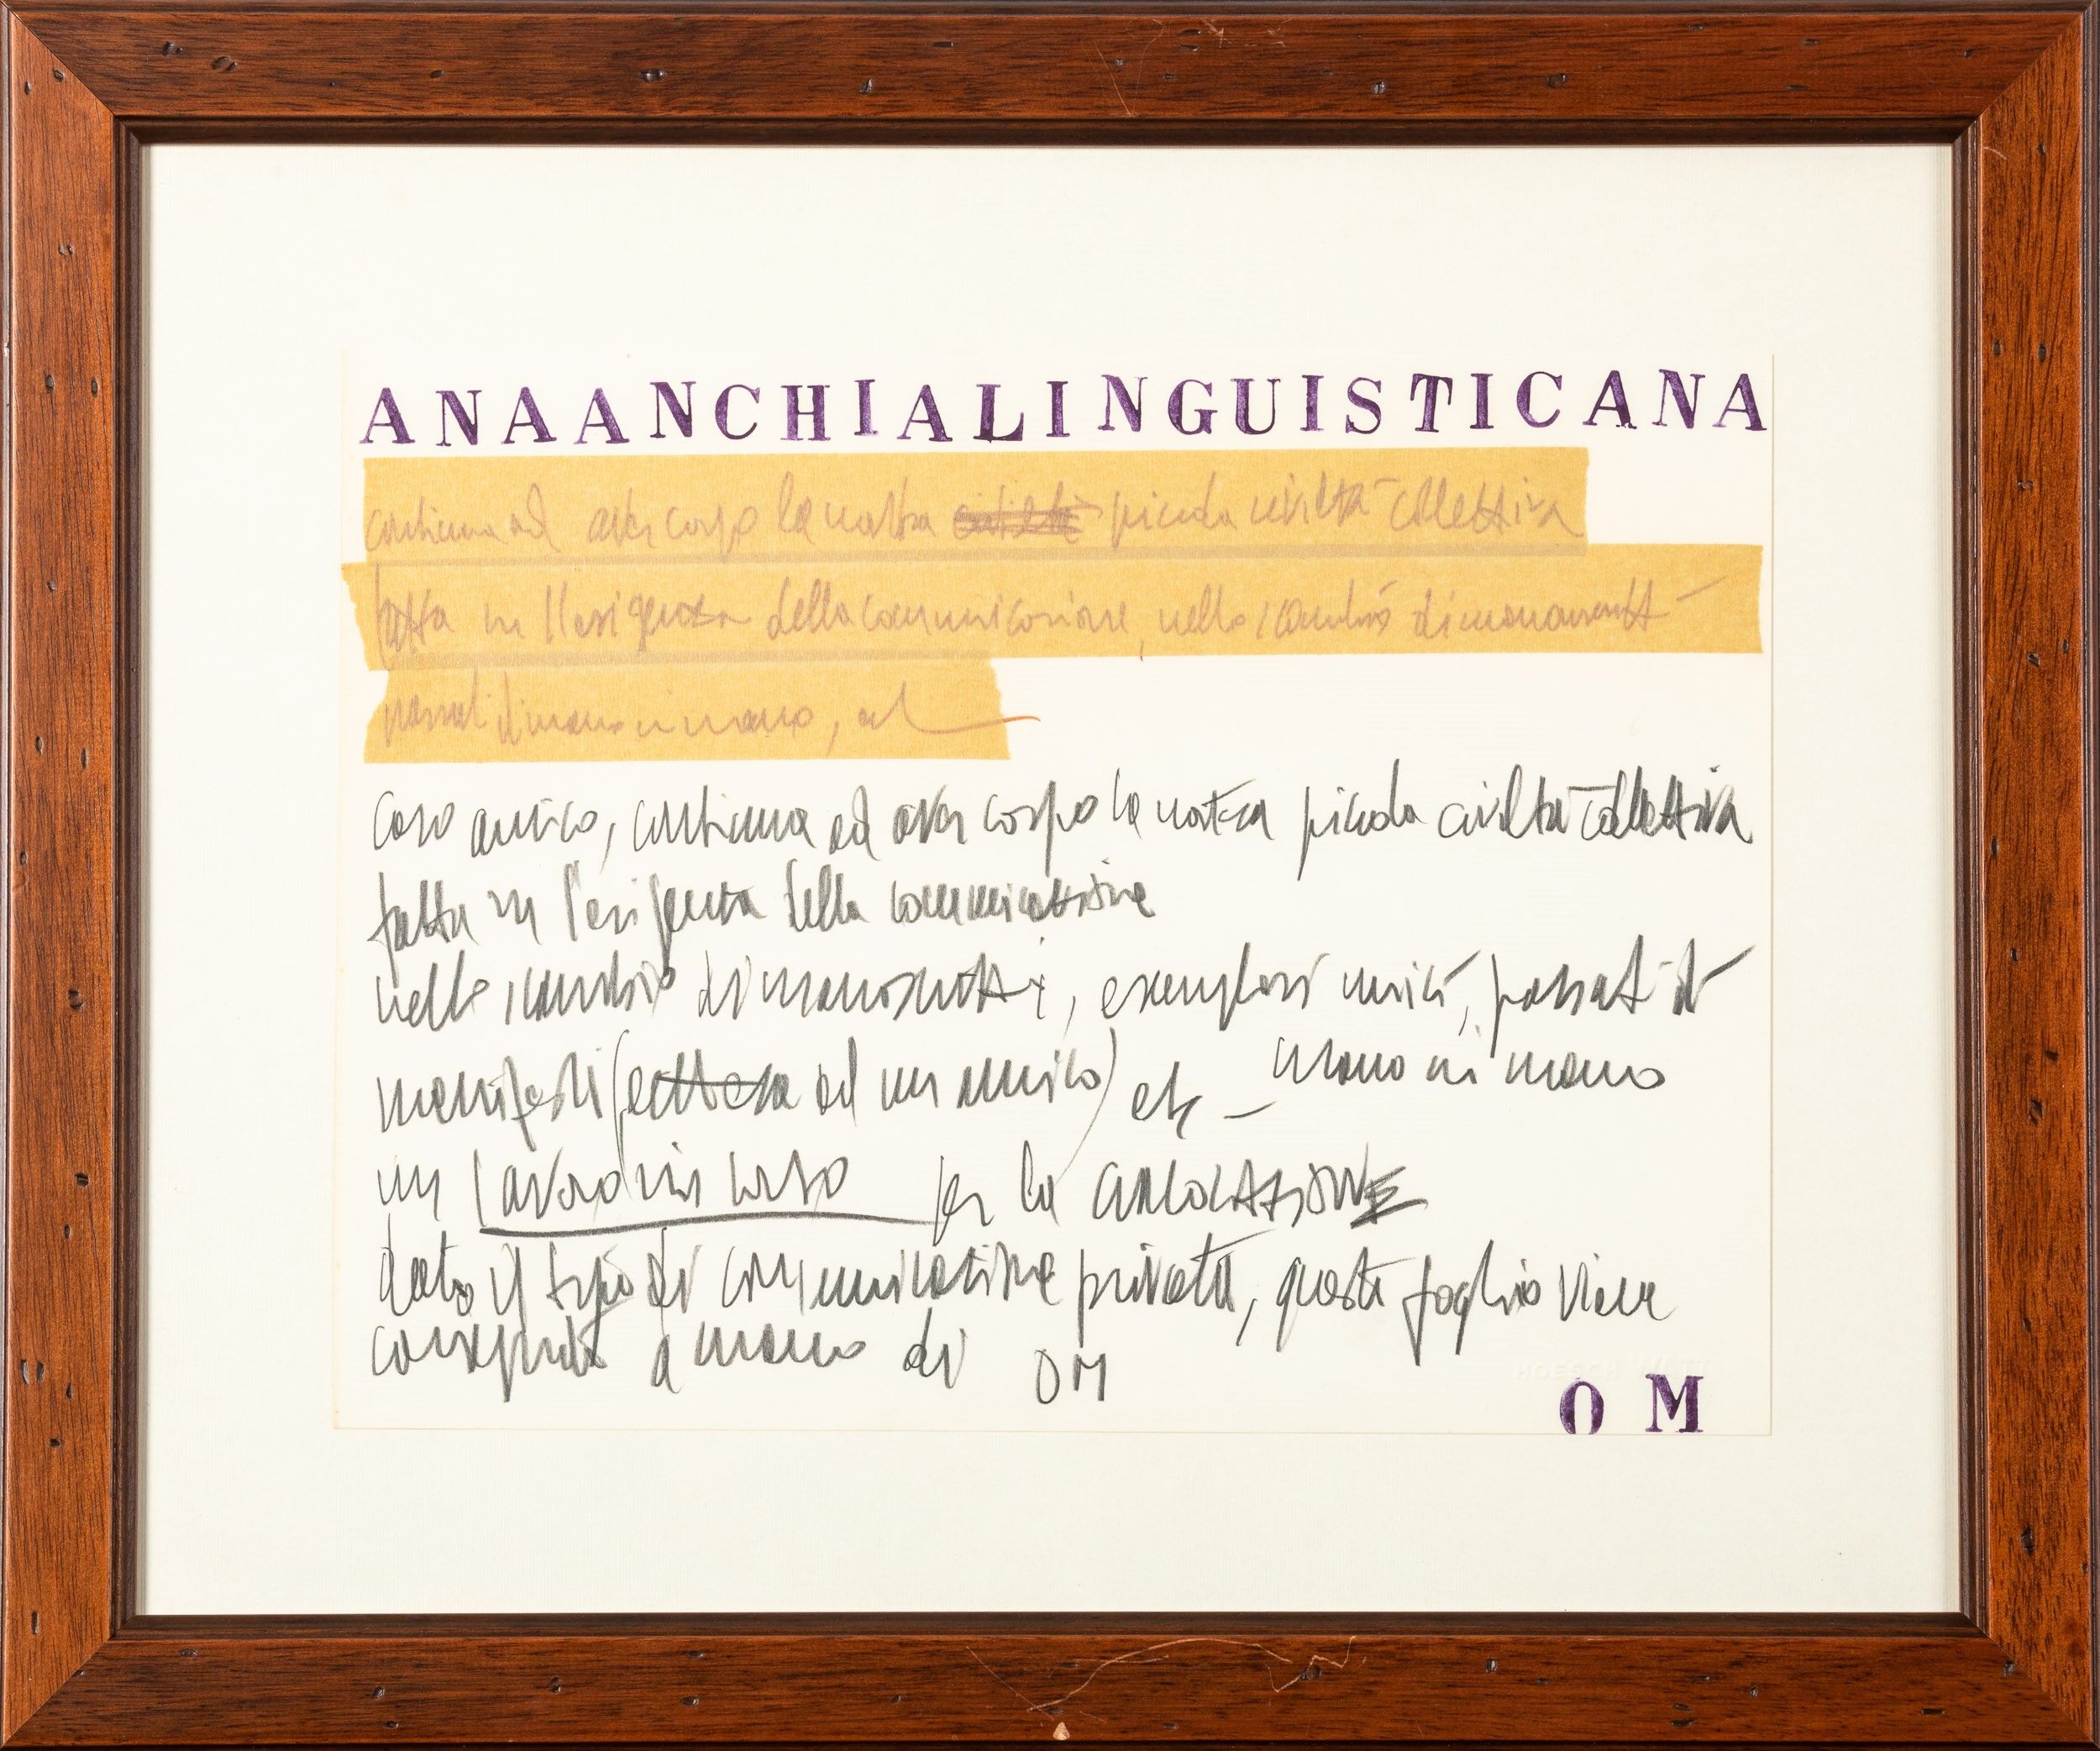 ANAANCHIALINGUISTICANA
continua ad aver corpo la nostra piccola civiltà collettiva
fatta in ll'esigenza della comunicazione, nello scambio di manoscritti
passati di mano in mano, ed
caro amico, continua ad aver corpo la nostra piccola civiltà collettiva
fatta in l'esigenza della comunicazione
nello scambio di manoscritti, esemplari unici, passati di
mano in mano
manifesti (lettera ad un amico) etc –
un lavoro in corso per la CIRCOLAZIONE
dato il tipo di comunicazione privata, questo foglio viene
consegnato a mano di OM
O M